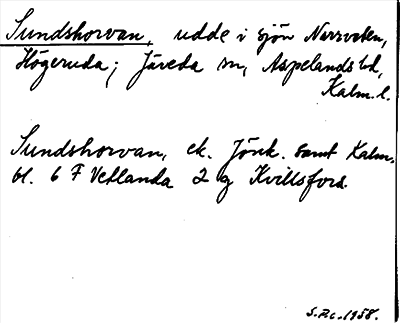 Sundshorvan, udde i sjön Norrveten,
Högeruda; Järeda sn, Aspelands hd,
Kalm. l.
Sundshorvan, ek. Jönk. samt Kalm.
bl. 6 F Vetlanda 2 g Kvillsfors.
S.Rc. 1958.